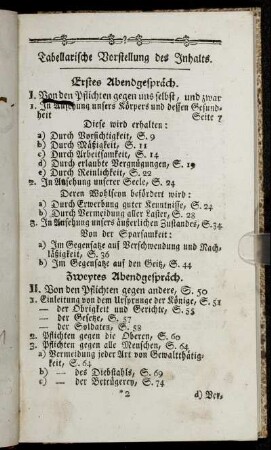 Tabellarische Vorstellung des Inhalts.
Erstes Abendgespräch.
I. Von den Pflichten gegen uns selbst, und zwar
1. In Ansehung unsers Körpers und dessen Gesund-
heit Seite 7
Diese wird erhalten:
a) Durch Vorsichtigkeit, S. 9
b) Durch Mäßigkeit, S. 11
c) Durch Arbeitsamkeit, S. 14
d) Durch erlaubte Vergnügungen, S. 19
e) Durch Reinlichkeit, S. 22
2. In Ansehung unserer Seele, S. 24
Deren Wohlseyn befördert wird:
a) Durch Erwerbung guter Kenntnisse, S. 24
b) Durch Vermeidung aller Laster, S. 28
3. In Ansehung unsers äußerlichen Zustandes, S. 34
Von der Sparsamkeit:
a) Im Gegensatze auf Verschwendung und Nach-
läßigkeit, S. 36
b) Im Gegensatze auf den Geitz, S. 44
Zweytes Abendgespräch.
II. Von den Pflichten gegen andere, S. 50
1. Einleitung von dem Ursprunge der Könige, S. 51
— der Obrigkeit und Gerichte, S. 55
— der Gesetze, S. 57
— der Soldaten, S. 58
2. Pflichten gegen die Oberen, S. 60
3. Pflichten gegen alle Menschen, S. 64
a) Vermeidung jeder Art von Gewaltthätig-
keit, S. 64
b) — des Diebstahls, S. 69
c) — der Betrügerey, S. 74
*2 d) Ver-